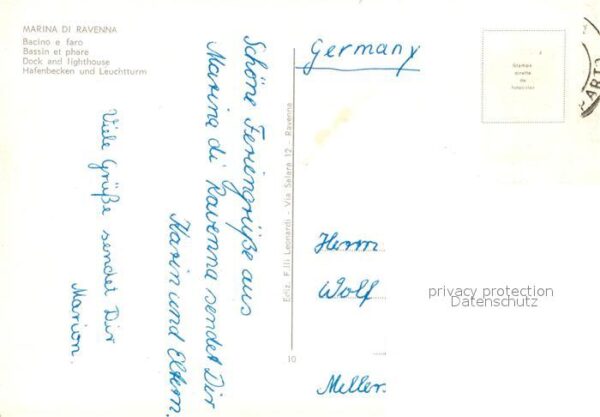 MARINA DI RAVENNA
Bacino e faro
Bassin et phare
Dock and lighthouse
Hafenbecken und Leuchtturm
Schöne Feriengrüße aus
Marina di Ravenna sendet Dir
Karin und Eltern.
Viele Grüße sendet Dir
Marion.
Ediz. F.lli Leonardi - Via Salara 12 - Ravenna
10
Germany
Herrn
Wolf
Meller.
privacy protection
Datenschutz